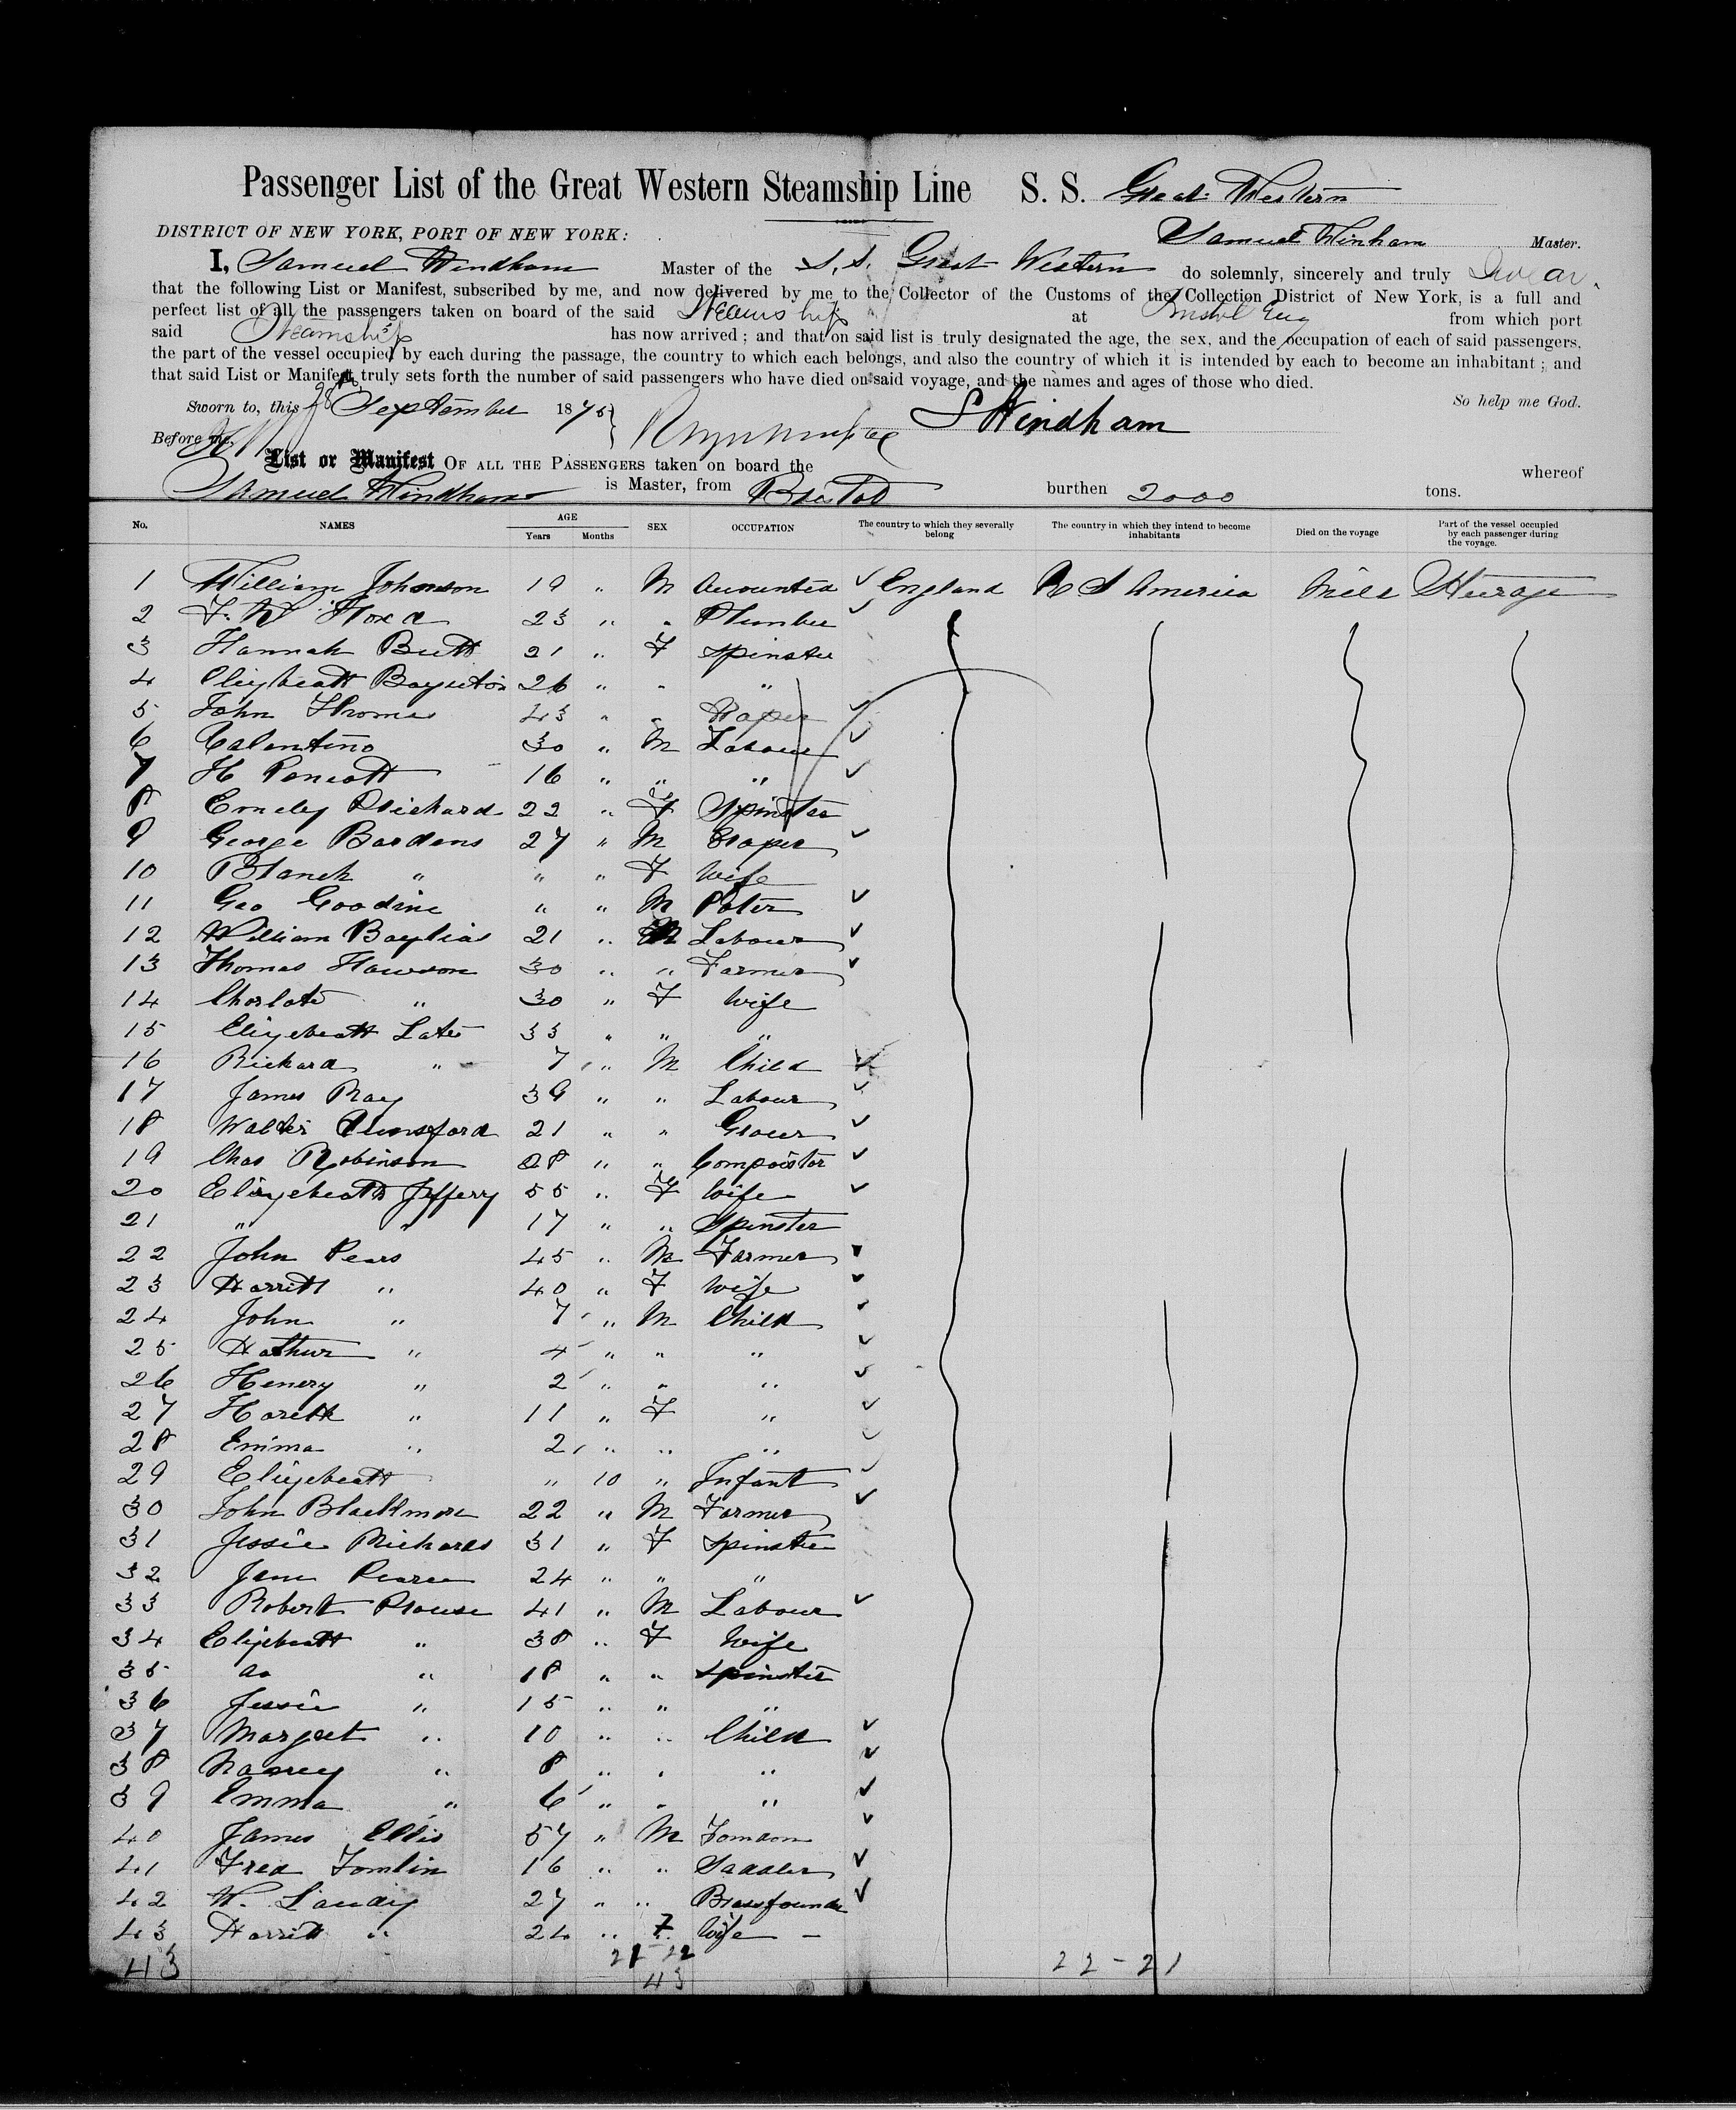 Passenger List of the Great Western Steamship Line S. S. Great Western
DISTRICT OF NEW YORK, PORT OF NEW YORK: Samuel Winham Master.
I, Samuel Windham Master of the S. S. Great Western do solemnly, sincerely and truly swear
that the following List or Manifest, subscribed by me, and now delivered by me to the Collector of the Customs of the Collection District of New York, is a full and
perfect list of all the passengers taken on board of the said Steamship at Bristol Eng from which port
said Steamship has now arrived; and that on said list is truly designated the age, the sex, and the occupation of each of said passengers,
the part of the vessel occupied by each during the passage, the country to which each belongs, and also the country of which it is intended by each to become an inhabitant; and
that said List or Manifest truly sets forth the number of said passengers who have died on said voyage, and the names and ages of those who died.
Sworn to, this 28 September 1875 So help me God.
S Windham
Before me,
List or Manifest OF ALL THE PASSENGERS taken on board the whereof
Samuel Windham is Master, from Bristol burthen 2000 tons.
No. NAMES AGE Years Months SEX OCCUPATION The country to which they severally belong The country in which they intend to become inhabitants Died on the voyage Part of the vessel occupied by each passenger during the voyage.
1 William Johnson 19 " M England U S America
2 23 " " Plumber
3 Hannah Butt 21 " F Spinster
4 26 " " "
5 John Thomas 43 " "
6 Valentino 30 " M Labour
7 16 " " "
8 22 " F Spinster
9 George Bardens 27 " M Draper
10 Blanch " " " F Wife
11 Geo Goodine " " M
12 William Baylias 21 " M Labour
13 Thomas Hawson 30 " " Farmer
14 Charlote " 30 " F Wife
15 33 " " "
16 Richard " 7 " M Child
17 James Ray 39 " " Labour
18 21 " " Grocer
19 Chas Robinson 28 " " Compositor
20 Elizebeath Jeffery 55 " F Wife
21 " " 17 " " Spinster
22 John Pears 45 " M Farmer
23 Harritt " 40 " F Wife
24 John " 7 " M Child
25 " 4 " " "
26 Henery " 2 " " "
27 " 11 " F "
28 Emma " 2 " " "
29 Elizebeath " 10 " Infant
30 John Blackmore 22 " M Farmer
31 Jessie Richards 31 " F Spinster
32 Jane Pearce 24 " " "
33 Robert Prouse 41 " M Labour
34 Elizebeath " 38 " F Wife
35 do " 18 " " Spinster
36 Jessie " 15 " " "
37 Margret " 10 " " Child
38 " 8 " " "
39 Emma " 6 " " "
40 James Ellis 57 " M
41 Fred Tomlin 16 " " Saddler
42 27 " " Brassfounder
43 Harritt " 24 " F. Wife –
43 21-22 22-21
43